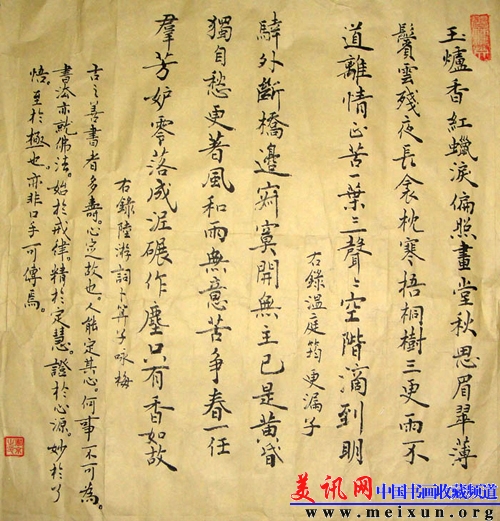 玉爐香紅蠟淚偏照畫堂秋思眉翠薄
鬢雲殘夜長衾枕寒梧桐樹三更雨不
道離情正苦一葉〻聲〻空階滴到明
右錄溫庭筠更漏子
驛外斷橋邊寂寞開無主已是黃昏
獨自愁更著風和雨無意苦爭春一任
羣芳妒零落成泥碾作塵只有香如故
右錄陸游詞卜算子咏梅
古之善書者多壽。心定故也。人能定其心。何事不可為。
書法亦就佛法。始於戒律。精於定慧。證於心源。妙於了
悟。至於極也。亦非口手可傳焉。
美讯网 中国书画收藏频道
www.meixun.org